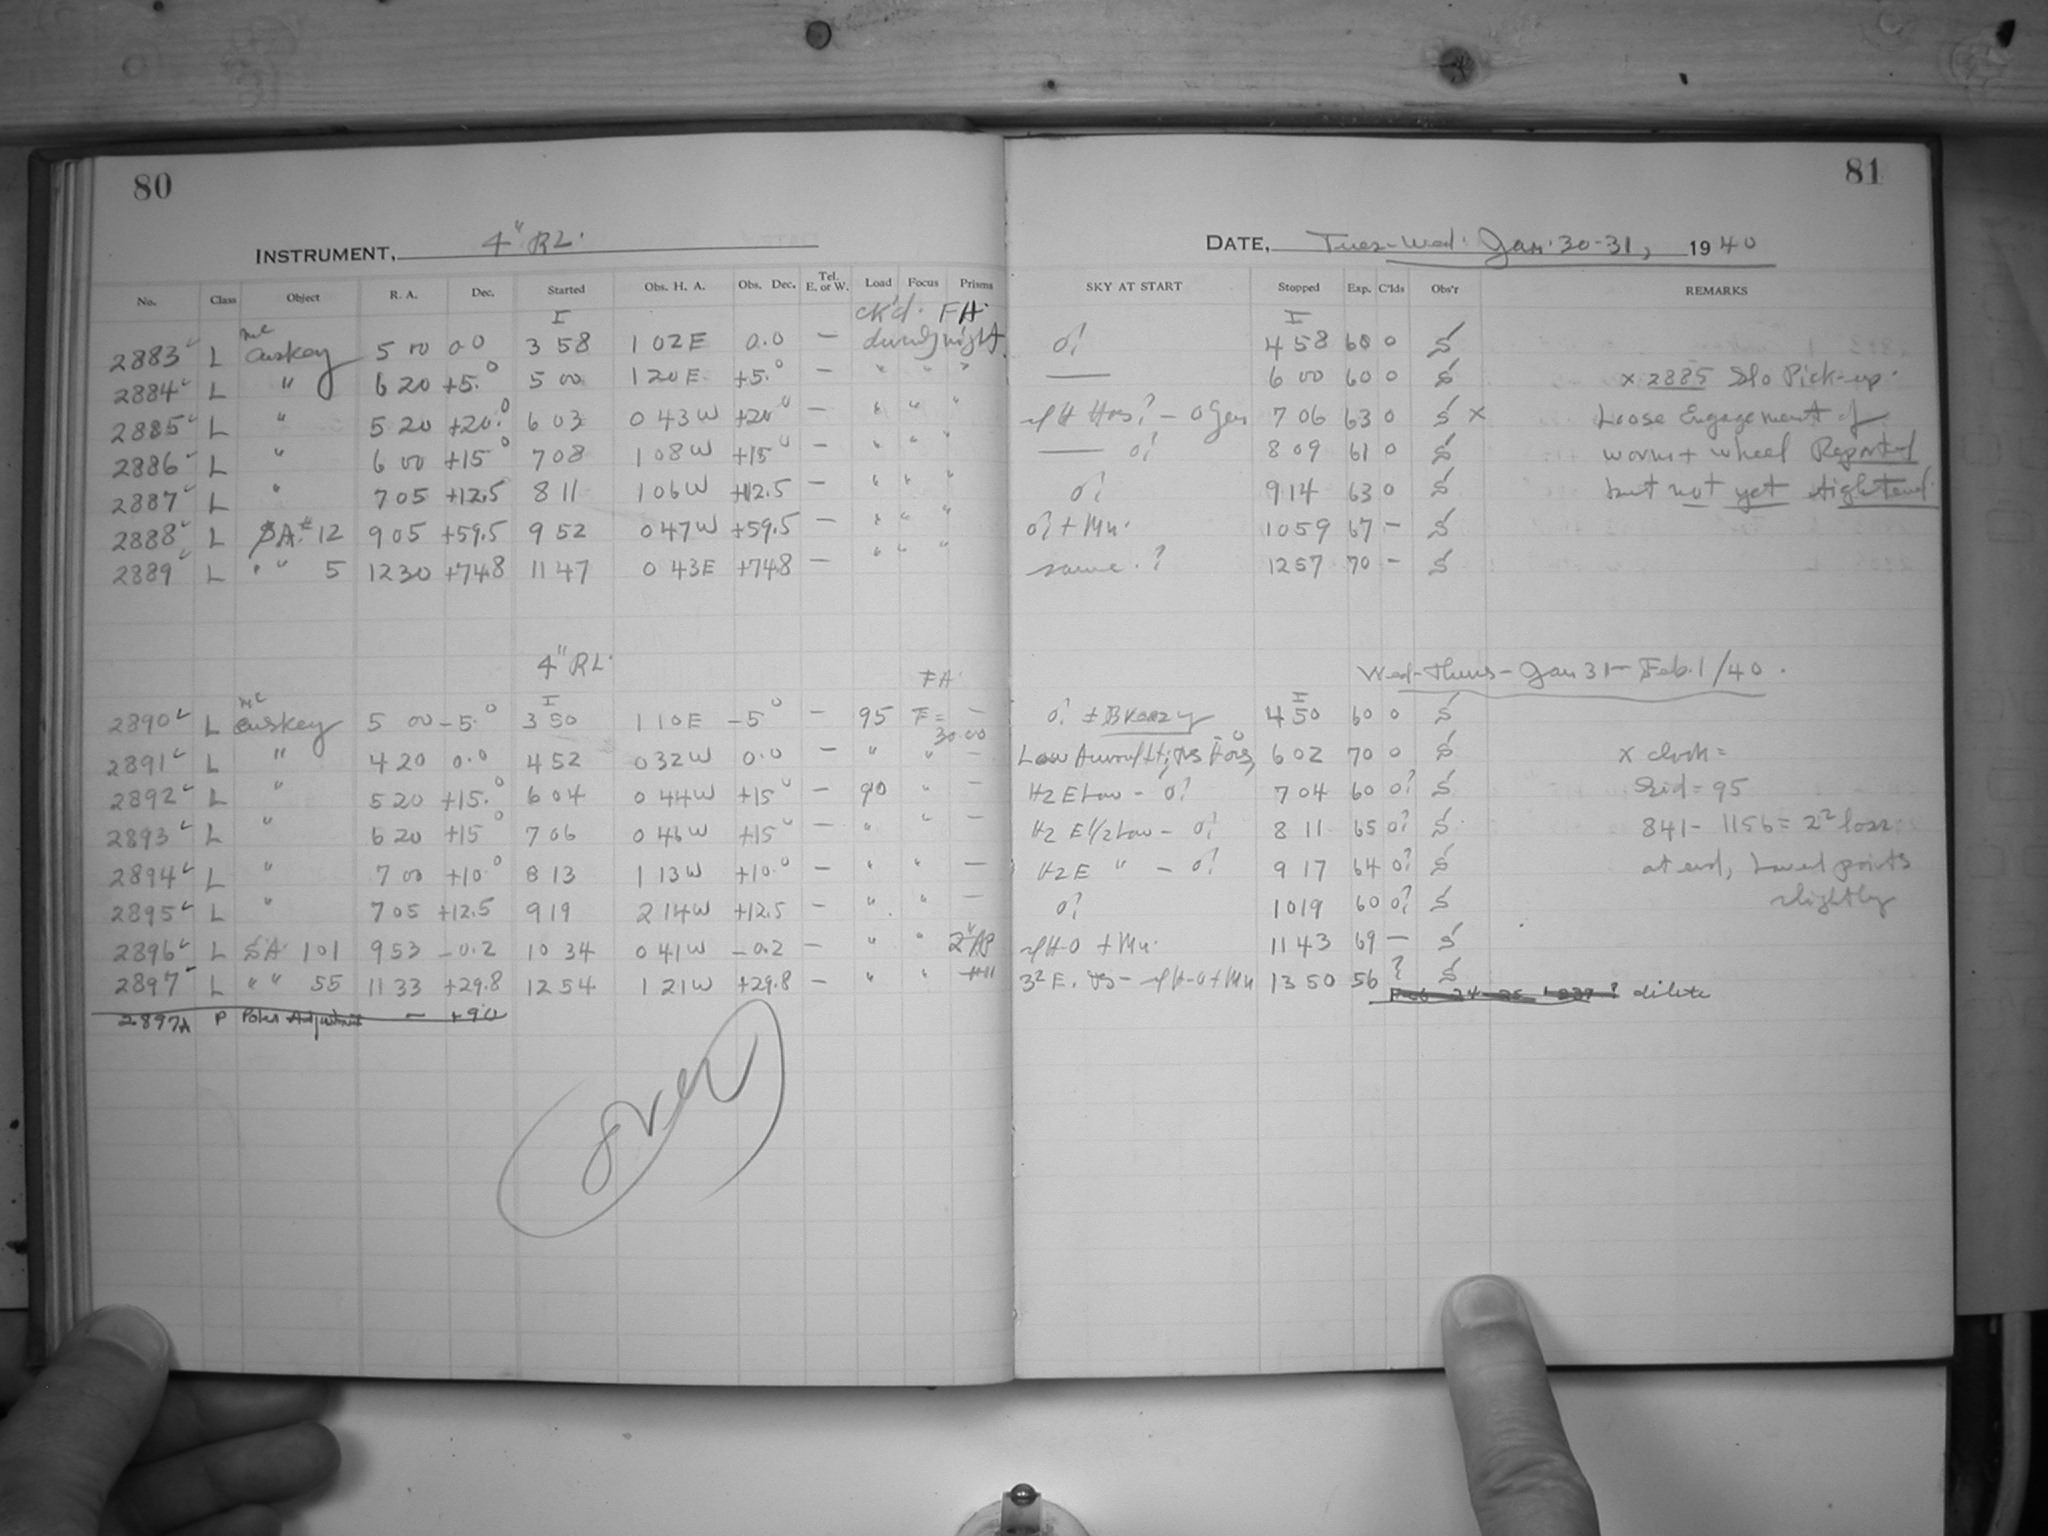 80
INSTRUMENT, 4" RL.
No. Class Object R. A. Dec. Started Obs. H. A. Obs. Dec. Tel. E. or W. Load Focus Prisms
I ck'd. FA.
2883 L McCuskey 5 00 0.0 3 58 1 02E 0.0 — during night
2884 L " 6 20 +5.0 5 00 1 20E +5.0 — " " "
2885 L " 5 20 +20.0 6 03 0 43W +20.0 — " " "
2886 L " 6 00 +15.0 7 08 1 08W +15.0 — " " "
2887 L " 7 05 +12.5 8 11 1 06W +12.5 — " " "
2888 L SA.# 12 9 05 +59.5 9 52 0 47W +59.5 — " " "
2889 L " " 5 12 30 +74.8 11 47 0 43E +74.8 — " " "
4" RL.
I FA
2890 L McCuskey 5 00 -5.0 3 50 1 10E -5.0 — 95 F= 30.00 —
2891 L " 4 20 0.0 4 52 0 32W 0.0 — " " —
2892 L " 5 20 +15.0 6 04 0 44W +15.0 — 90 " —
2893 L " 6 20 +15.0 7 06 0 46W +15.0 — " " —
2894 L " 7 00 +10.0 8 13 1 13W +10.0 — " " —
2895 L " 7 05 +12.5 9 19 2 14W +12.5 — " " —
2896 L SA 101 9 53 -0.2 10 34 0 41W -0.2 — " "
2897 L " " 55 11 33 +29.8 12 54 1 21W +29.8 — " "
2897A P Polar Adjustment — +90
over
81
DATE, Tues-Wed. Jan. 30-31, 1940
SKY AT START Stopped Exp. C'lds Obs'r REMARKS
I
0? 4 58 60 0 S
— 6 00 60 0 S x 2885 Slo Pick-up.
7 06 63 0 S x Loose Engagement of
— 0? 8 09 61 0 S worm + wheel Reported
0? 9 14 63 0 S but not yet tightened.
0? + Mn. 10 59 67 — S
same.? 12 57 70 — S
Wed-Thurs-Jan 31-Feb. 1/40.
I
0? ± Breezy 4 50 60 0 S
Low 6 02 70 0 S x clock =
HZ E Low - 0? 7 04 60 0? S Sid = 95
HZ E 1/2 Low - 0? 8 11 65 0? S 841 - 1156 = 2² loss
HZ E " - 0? 9 17 64 0? S at end, points
0? 10 19 60 0? S slightly
+ Mn. 11 43 69 — S
13 50 56 ? S
Feb 24-25 1939? dilete